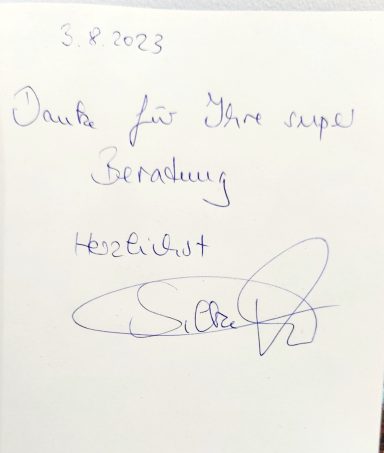 3.8.2023
Danke für Ihre super
Beratung
Herzlichst
Silke